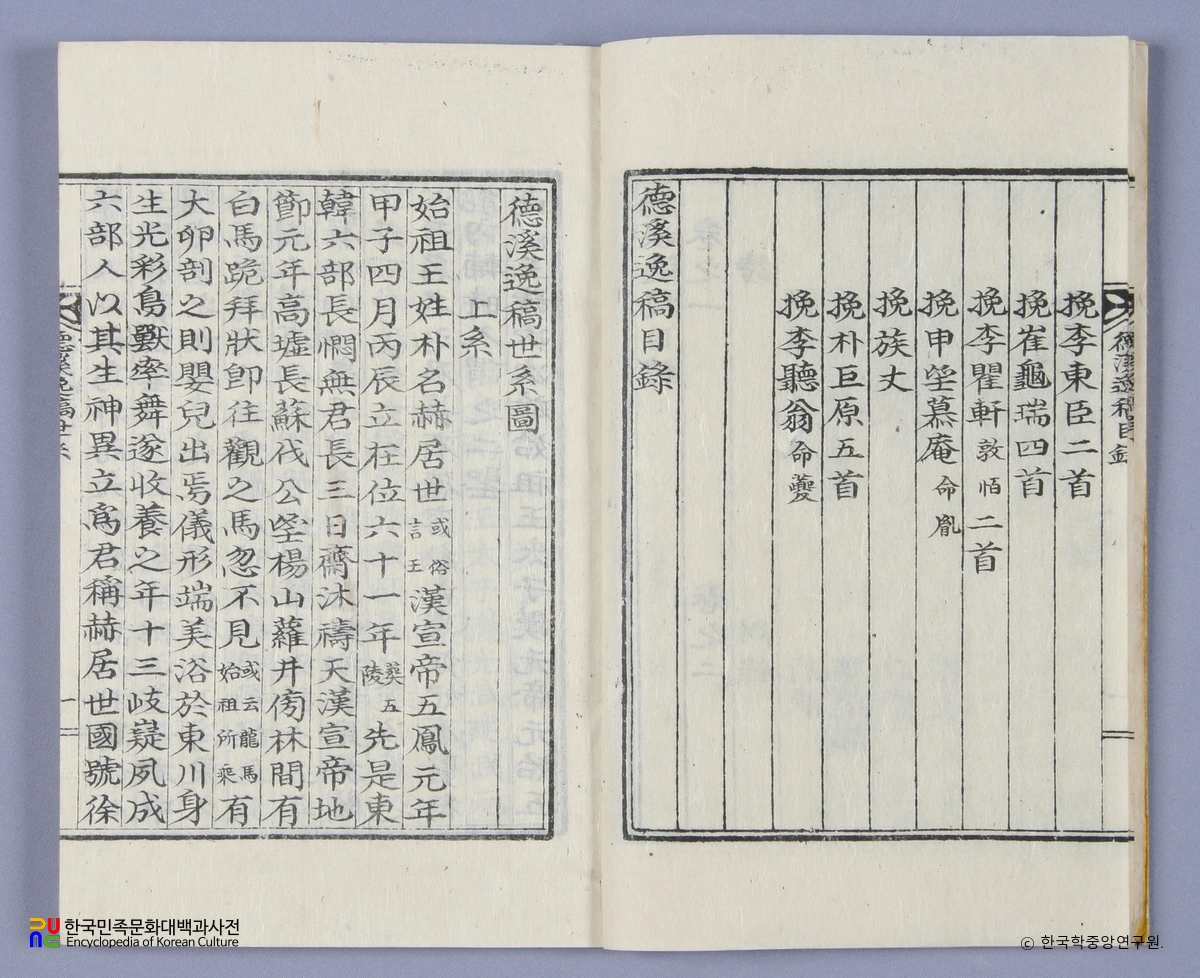 德溪逸稿目錄
挽李東臣二首
挽崔龜瑞四首
挽李瞿軒敦恒二首
挽申望慕庵命胤
挽族丈
挽朴巨原五首
挽李聽翁命夔
德溪逸稿目錄
德溪逸稿世系圖
上系
始祖王姓朴名赫居世或俗言王漢宣帝五鳳元年
甲子四月丙辰立在位六十一年葬五陵先是東
韓六部長悶無君長三日齋沐禱天漢宣帝地
節元年高墟長蘇伐公望楊山蘿井傍林間有
白馬跪拜狀卽往觀之馬忽不見或云龍馬始祖所乘有
大卵剖之則嬰兒出焉儀形端美浴於東川身
生光彩鳥獸率舞遂收養之年十三岐嶷夙成
六部人以其生神異立爲君稱赫居世國號徐
德溪逸稿世系
一
한국민족문화대백과사전
Encyclopedia of Korean Culture
© 한국학중앙연구원.